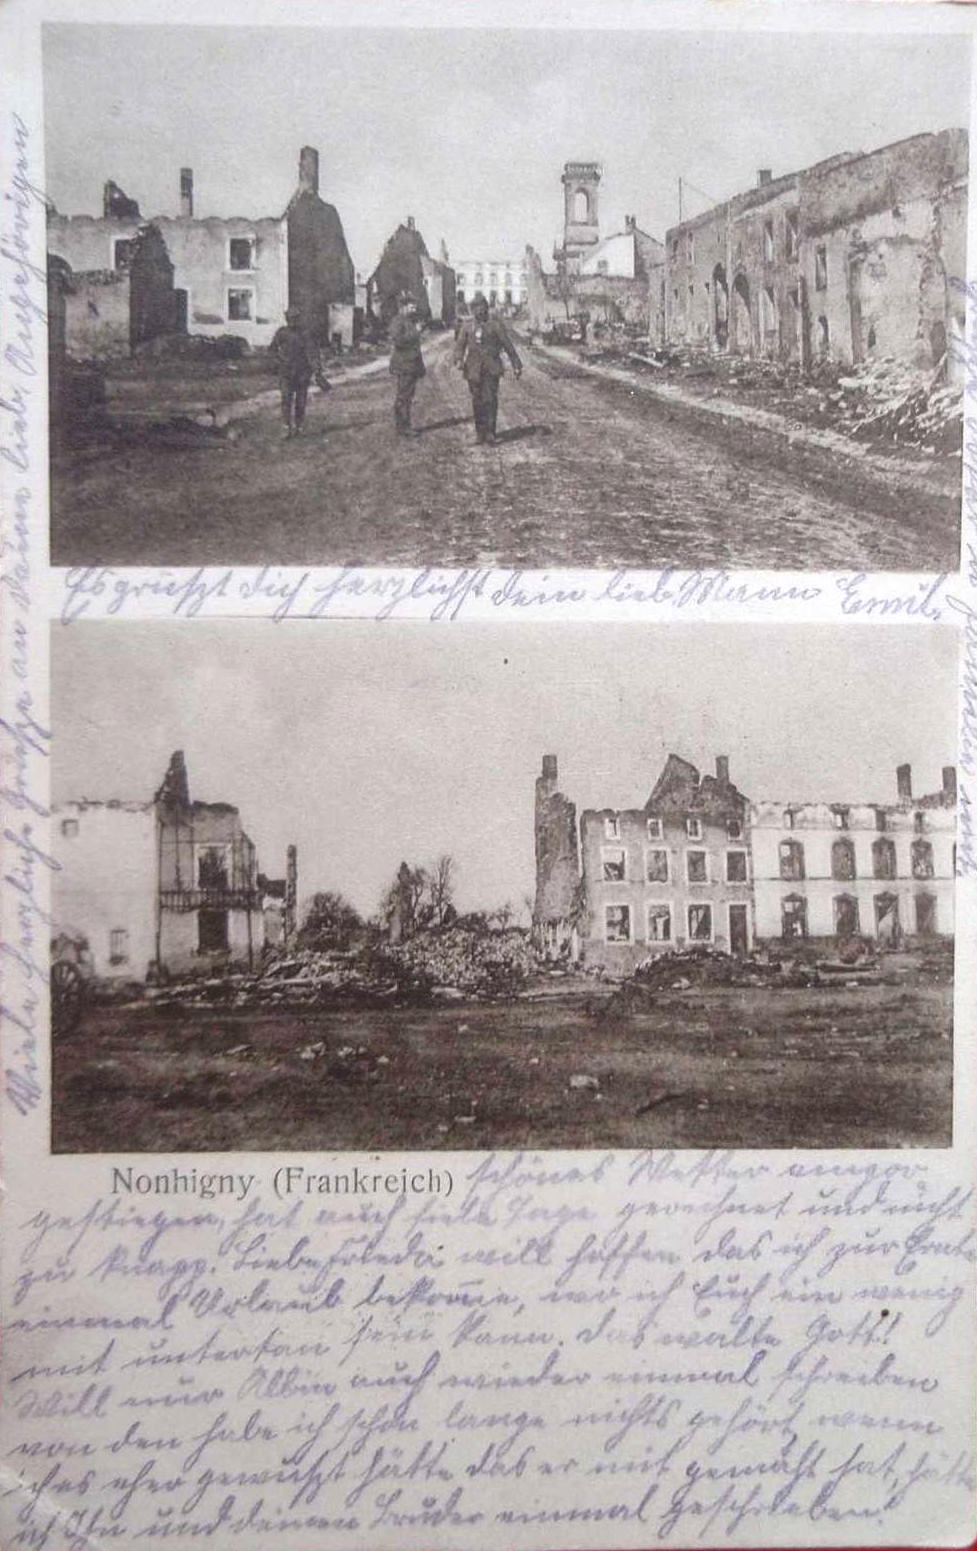 Es grüszt Dich herzlichst dein lieb. Mann Emil.
Nonhigny (Frankreich)
schönes Wetter empor
gestiegen, hat auch viele Tage gerechnet und nicht
zu knapp. Liebe Frieda will hoffen das ich zur Ernte
einmal Urlaub bekomme, wo ich Euch ein wenig
mit untertan sein kann. Das walte Gott!
Will nur Albin auch wieder einmal schreiben
von den habe ich schon lange nichts gehört, wenn
ich es eher gewuszt hätte das er mit gemäht hat, hätte
ich Ihn und deinen Bruder einmal geschrieben!
Viele herzlich. Grüsze an deine lieb. Angehörigen